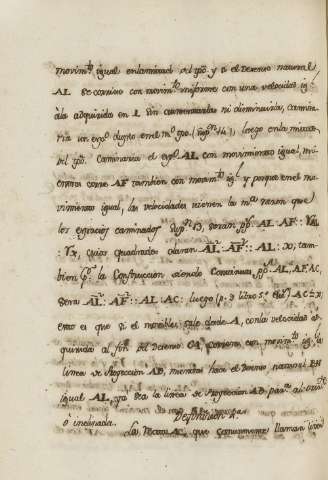 movim.to igual en la mitad del tpo. y si el Descenso natural
AL se corriese con movim.to uniforme con una velocidad ig.l
à la adquirida en L sin aumentarla ni disminuirla, camina
ria un espº duplo en el mº tpo. (sup.n 14.) luego en la mitad
del tpo. caminaria el espº AL con movimiento igual, mi
entras corre AF tambien con movim.to ig.l y porque en el mo
vimiento igual, las velocidades tienen la m.a razon que
los espacios caminados sup.n 13, seran pp.s AL . AF :: VAL
: Vx, cuios quadrados daran AL² . AF² :: AL . x, tam
bien p.r la construccion siendo continuas pp. AL, AF, AC,
sera AL² . AF² :: AL . AC : luego (p. 9 libro 5.º) AC = x;
esto es que si el movible sale desde A, con la velocidad ad
quirida al fin del Descenso CA, correra con movim.to ig.l la
linea de Proyeccion AD, mientras hace el Descenso natural BH
igual AL, ya sea la linea de Proyeccion AD
ò inclinada.
Definicion
La Recta AC, que comunmente llaman